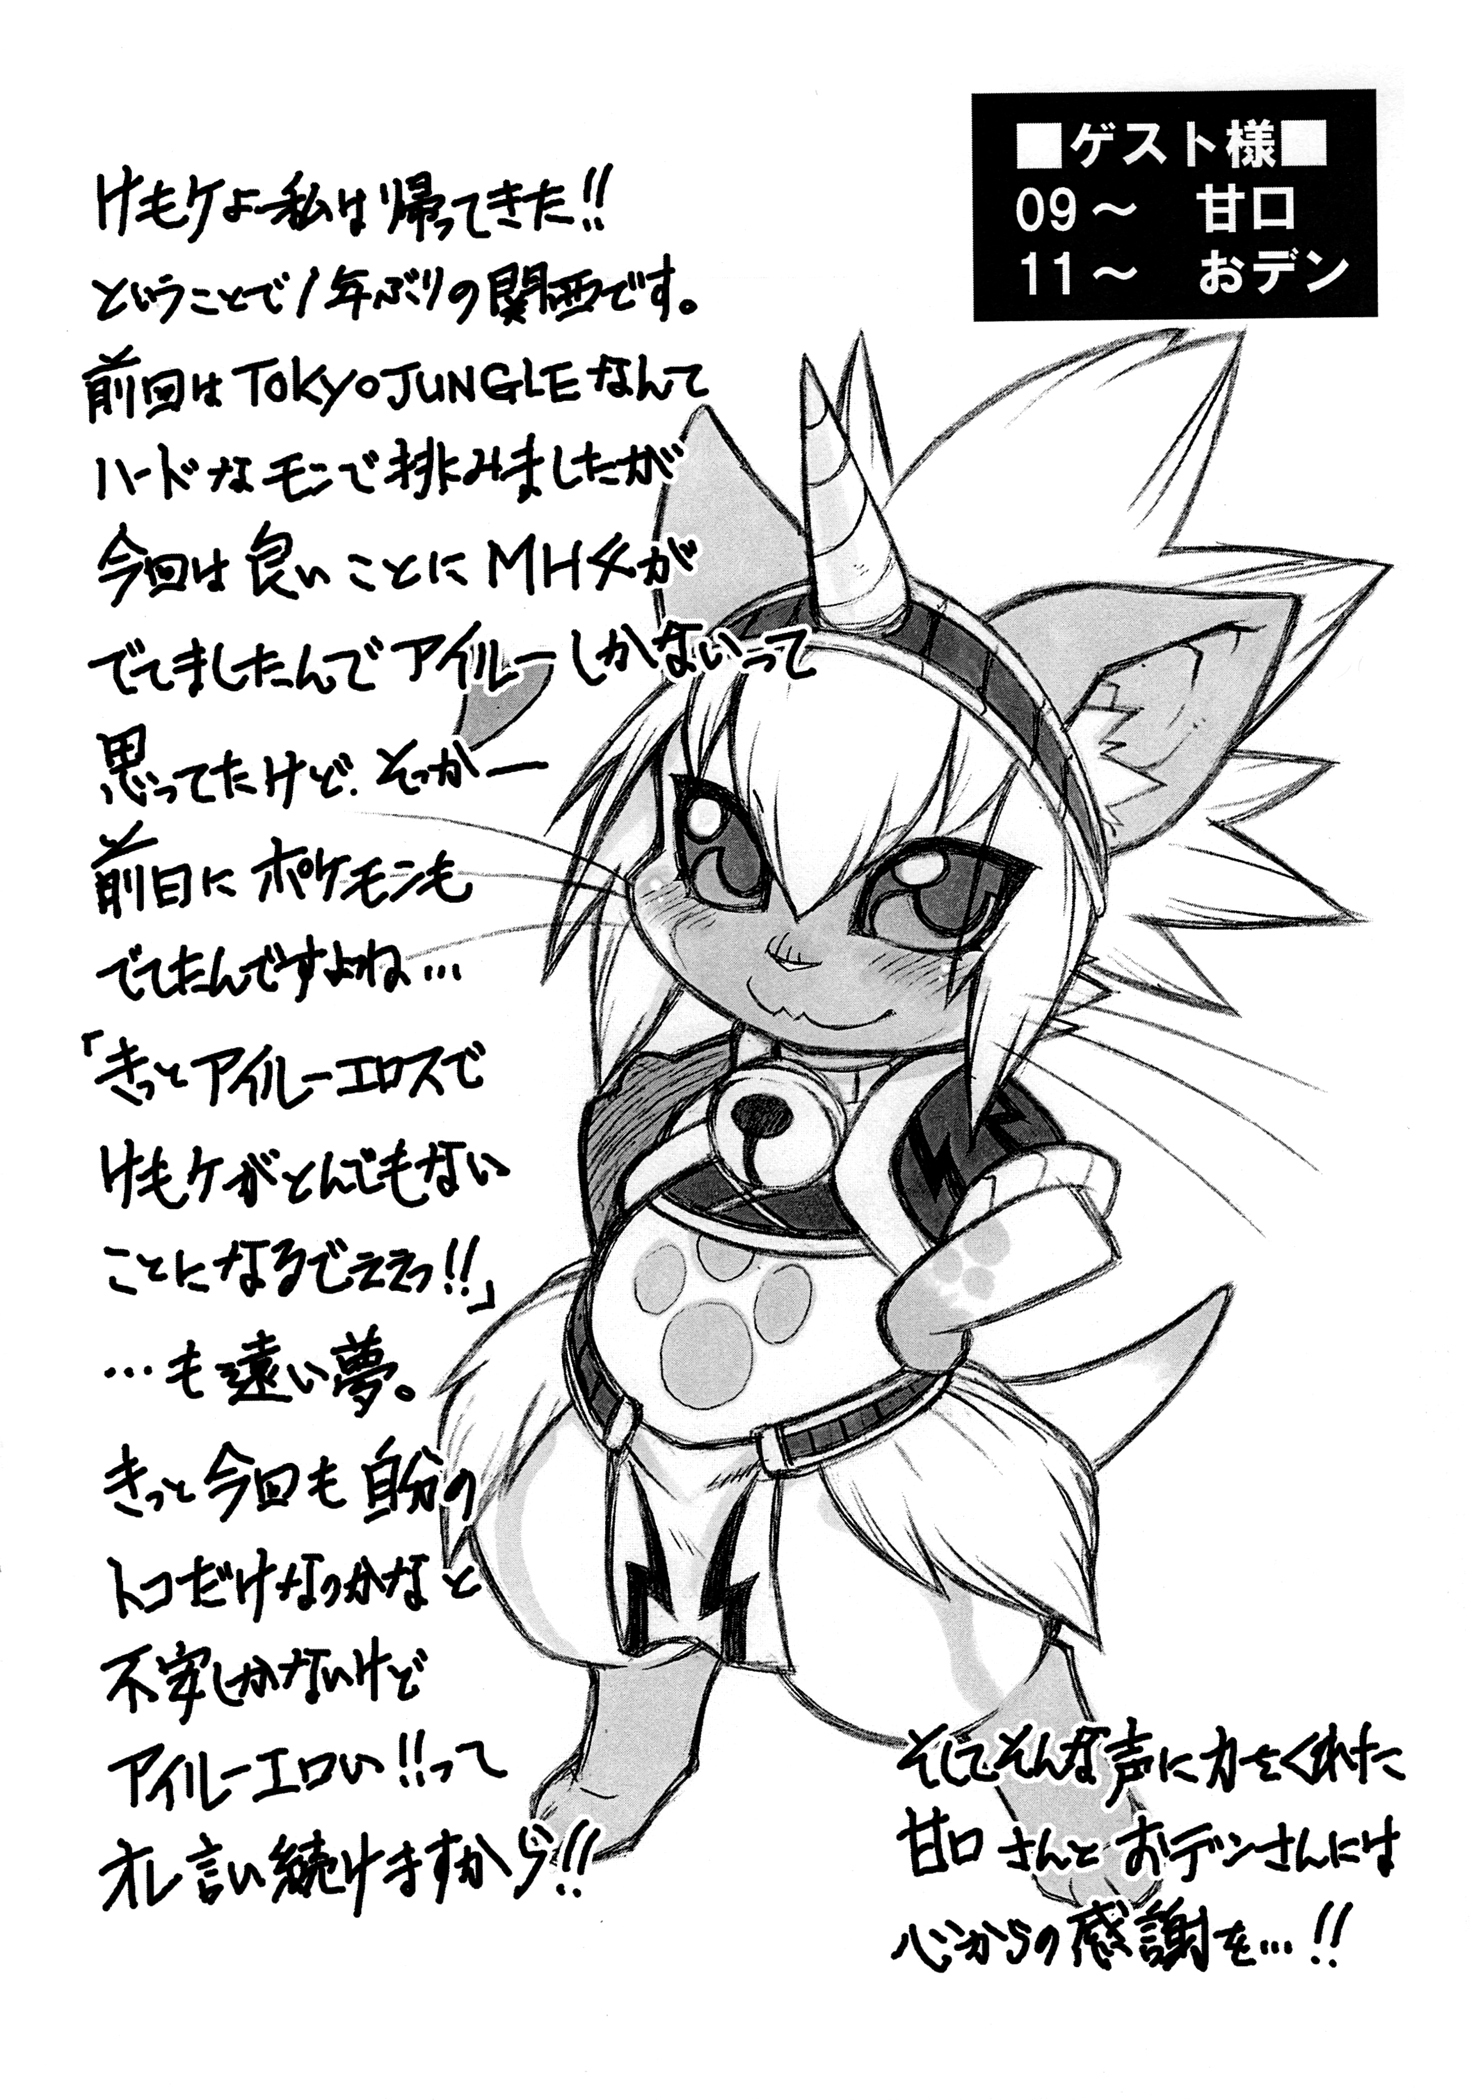 ■ゲスト様■
09～ 甘口
11～ おデン
けもケよー私は帰ってきた!!
ということで1年ぶりの関西です。
前回はTOKYOJUNGLEなんて
ハードなモンで挑みましたが
今回は良いことにMH4が
でてましたんでアイルーしかないって
思ってたけど、そっかー
前日にポケモンも
でてたんですよね…
「きっとアイルーエロスで
けもケがとんでもない
ことになるでぇぇっ!!」
…も遠い夢。
きっと今回も自分の
トコだけなっかなと
不安しかないけど
アイルーエロい!!って
オレ言い続けますから!!
そしてそんな声に力をくれた
甘口さんとおデンさんには
心からの感謝を…!!